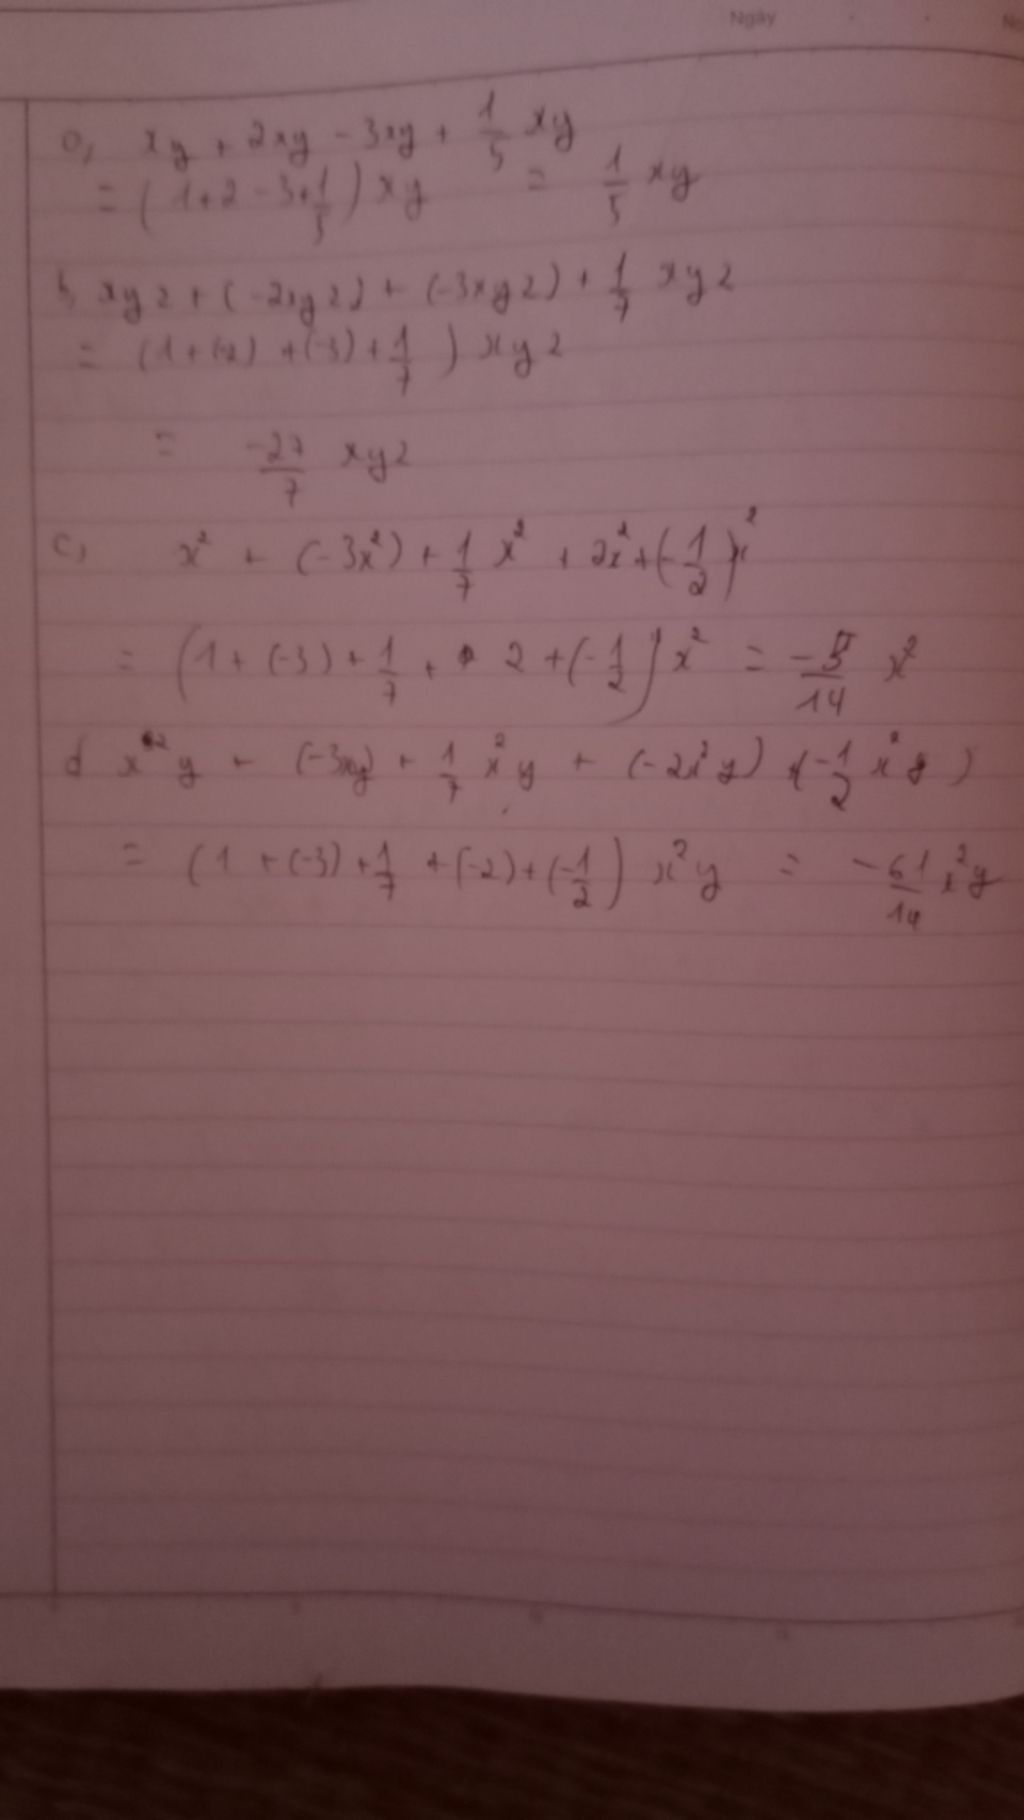 Ngày
a, xy + 2xy - 3xy + 1/5 xy
= (1+2-3+1/5) xy = 1/5 xy
b, xyz + (-2xyz) + (-3xyz) + 1/7 xyz
= (1+(-2)+(-3)+1/7) xyz
= -27/7 xyz
c, x² + (-3x²) + 1/7 x² + 2x² + (-1/2)x²
= (1+(-3)+1/7+2+(-1/2)) x² = -5/14 x²
d x²y + (-3xy) + 1/7 x²y + (-2x²y) + (-1/2 x²y)
= (1+(-3)+1/7+(-2)+(-1/2)) x²y = -61/14 x²y